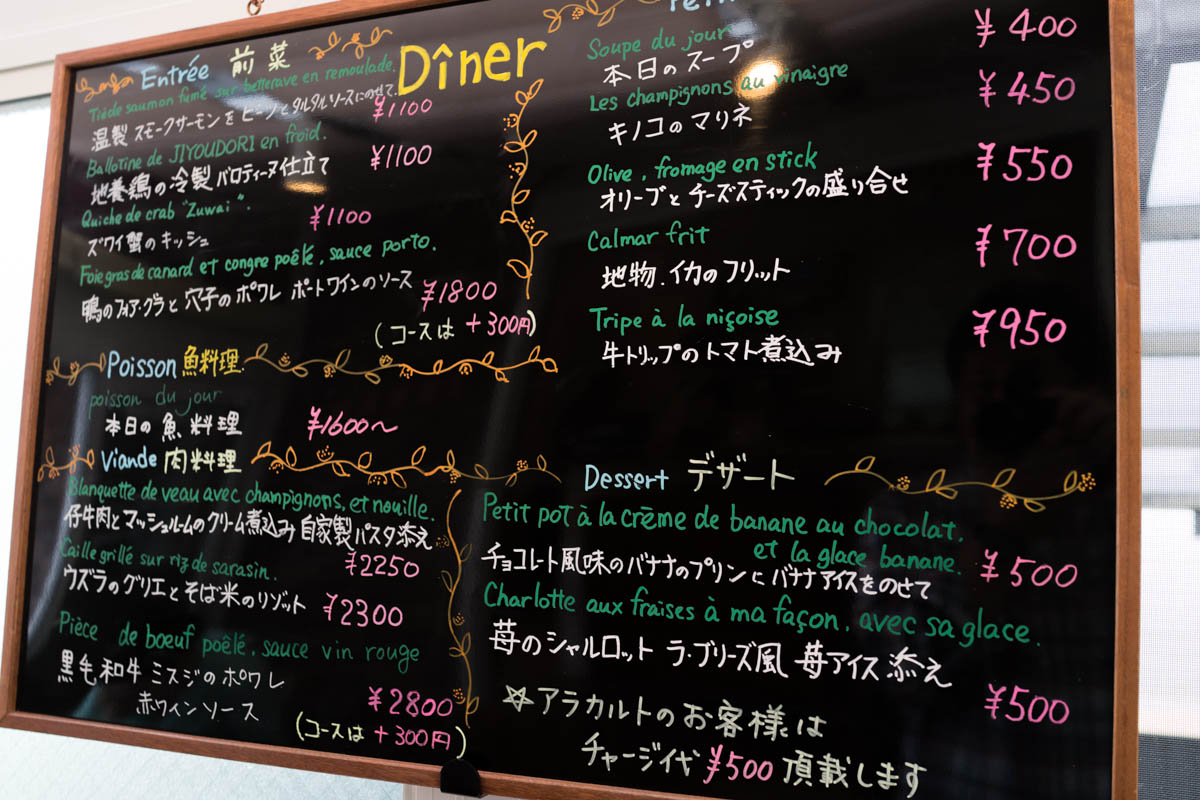 Dîner
Entrée 前菜
Tiède saumon fumé sur betterave en remoulade.
温製 スモークサーモンを ビーツとタルタルソースにのせて. ¥1100
Ballotine de JIYOUDORI en froid.
地養鶏の冷製バロティーヌ仕立て ¥1100
Quiche de crab "Zuwai".
ズワイ蟹のキッシュ ¥1100
Foie gras de canard et congre poêlé, sauce porto.
鴨のフォア・グラと穴子のポワレ ポートワインのソース ¥1800
(コースは +300円)
Poisson 魚料理
poisson du jour
本日の魚料理 ¥1600〜
Viande 肉料理
Blanquette de veau avec champignons, et nouille.
仔牛肉とマッシュルームのクリーム煮込み 自家製パスタ添え
¥2250
Caille grillé sur riz de sarasin.
ウズラのグリエとそば米のリゾット ¥2300
Pièce de boeuf poêlé, sauce vin rouge
黒毛和牛ミスジのポワレ
赤ワインソース ¥2800
(コースは +300円)
Soupe du jour
本日のスープ ¥400
Les champignons au vinaigre
キノコのマリネ ¥450
Olive, fromage en stick
オリーブとチーズスティックの盛り合せ ¥550
Calmar frit
地物.イカのフリット ¥700
Tripe à la niçoise
牛トリップのトマト煮込み ¥950
Dessert デザート
Petit pot à la crème de banane au chocolat,
et la glace banane.
チョコレート風味のバナナのプリンにバナナアイスをのせて ¥500
Charlotte aux fraises à ma façon, avec sa glace.
苺のシャルロット ラ・ブリーズ風 苺アイス添え
¥500
☆アラカルトのお客様は
チャージイ代 ¥500 頂載します